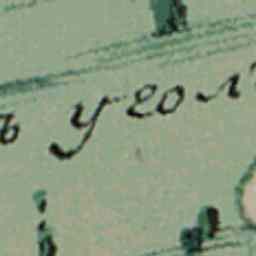 ъ угол